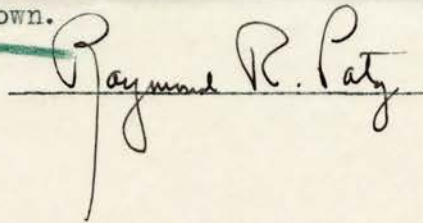 own.
Raymond R. Paty